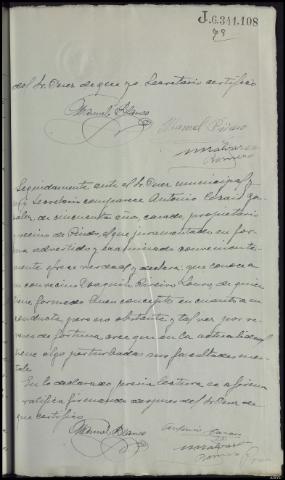 J.6.341.108
79
del Sr. Juez de que yo Secretario certifico
Manuel Blanco
Manuel Piñaro
Seguidamente ante el Sr. Juez municipal y
Secretario comparece Antonio Casais Gon
zalez, de cincuenta años, casado, propietario
vecino de Pindo, el que juramentado en for
ma advertido y examinado conveniente
mente ofrece verdad y declara: que conoce a
su convecino Joaquin Piñeiro Louro de quien
tiene formado buen concepto en cuanto a su
conducta, pero no obstante y tal vez por re
veses de fortuna, cree que en la actualidad
tiene algo perturbadas sus facultades men
tales.
En lo declarado previa lectura se afirma
ratifica firmando despues del Sr. Juez de
que certifico.
Manuel Blanco
Antonio Casais